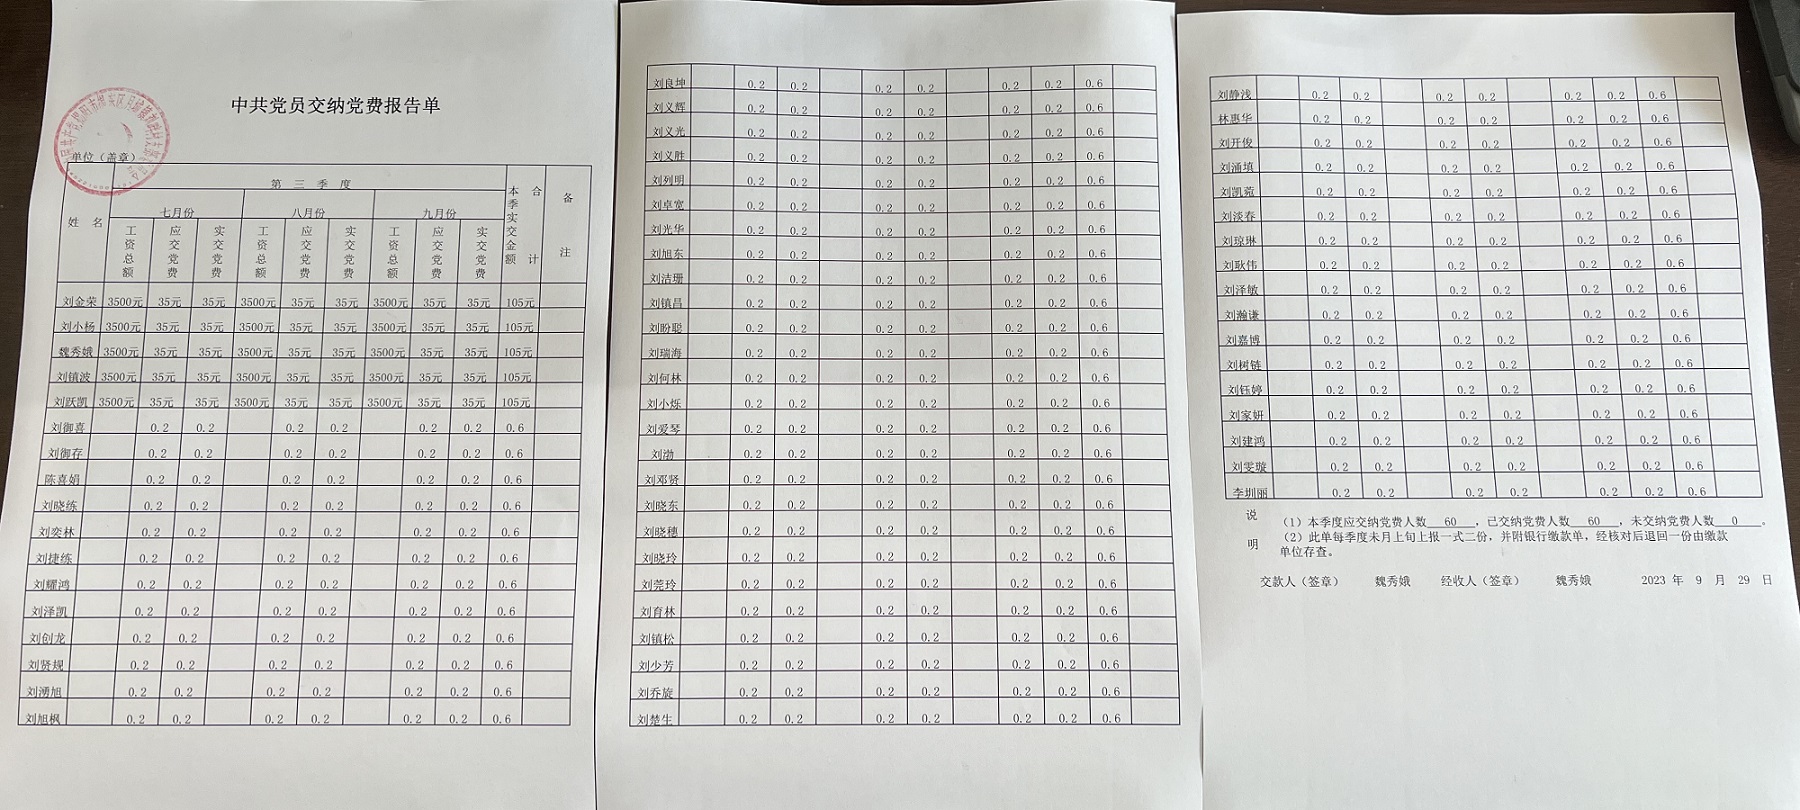 中共党员交纳党费报告单
单位（盖章）
姓 名 第 三 季 度 本季实交金额 合计 备注
七月份 八月份 九月份
工资总额 应交党费 实交党费 工资总额 应交党费 实交党费 工资总额 应交党费 实交党费
刘金荣 3500元 35元 35元 3500元 35元 35元 3500元 35元 35元 105元
刘小杨 3500元 35元 35元 3500元 35元 35元 3500元 35元 35元 105元
魏秀娥 3500元 35元 35元 3500元 35元 35元 3500元 35元 35元 105元
刘镇波 3500元 35元 35元 3500元 35元 35元 3500元 35元 35元 105元
刘跃凯 3500元 35元 35元 3500元 35元 35元 3500元 35元 35元 105元
刘御喜 0.2 0.2 0.2 0.2 0.2 0.2 0.6
刘御存 0.2 0.2 0.2 0.2 0.2 0.2 0.6
陈喜娟 0.2 0.2 0.2 0.2 0.2 0.2 0.6
刘晓练 0.2 0.2 0.2 0.2 0.2 0.2 0.6
刘奕林 0.2 0.2 0.2 0.2 0.2 0.2 0.6
刘捷练 0.2 0.2 0.2 0.2 0.2 0.2 0.6
刘耀鸿 0.2 0.2 0.2 0.2 0.2 0.2 0.6
刘泽凯 0.2 0.2 0.2 0.2 0.2 0.2 0.6
刘创龙 0.2 0.2 0.2 0.2 0.2 0.2 0.6
刘贤规 0.2 0.2 0.2 0.2 0.2 0.2 0.6
刘湧旭 0.2 0.2 0.2 0.2 0.2 0.2 0.6
刘旭枫 0.2 0.2 0.2 0.2 0.2 0.2 0.6
刘良坤 0.2 0.2 0.2 0.2 0.2 0.2 0.6
刘义辉 0.2 0.2 0.2 0.2 0.2 0.2 0.6
刘义光 0.2 0.2 0.2 0.2 0.2 0.2 0.6
刘义胜 0.2 0.2 0.2 0.2 0.2 0.2 0.6
刘列明 0.2 0.2 0.2 0.2 0.2 0.2 0.6
刘卓宽 0.2 0.2 0.2 0.2 0.2 0.2 0.6
刘光华 0.2 0.2 0.2 0.2 0.2 0.2 0.6
刘旭东 0.2 0.2 0.2 0.2 0.2 0.2 0.6
刘洁珊 0.2 0.2 0.2 0.2 0.2 0.2 0.6
刘镇昌 0.2 0.2 0.2 0.2 0.2 0.2 0.6
刘盼聪 0.2 0.2 0.2 0.2 0.2 0.2 0.6
刘瑞海 0.2 0.2 0.2 0.2 0.2 0.2 0.6
刘何林 0.2 0.2 0.2 0.2 0.2 0.2 0.6
刘小烁 0.2 0.2 0.2 0.2 0.2 0.2 0.6
刘爱琴 0.2 0.2 0.2 0.2 0.2 0.2 0.6
刘渤 0.2 0.2 0.2 0.2 0.2 0.2 0.6
刘邓贤 0.2 0.2 0.2 0.2 0.2 0.2 0.6
刘晓东 0.2 0.2 0.2 0.2 0.2 0.2 0.6
刘晓穗 0.2 0.2 0.2 0.2 0.2 0.2 0.6
刘晓玲 0.2 0.2 0.2 0.2 0.2 0.2 0.6
刘莞玲 0.2 0.2 0.2 0.2 0.2 0.2 0.6
刘育林 0.2 0.2 0.2 0.2 0.2 0.2 0.6
刘镇松 0.2 0.2 0.2 0.2 0.2 0.2 0.6
刘少芳 0.2 0.2 0.2 0.2 0.2 0.2 0.6
刘乔旋 0.2 0.2 0.2 0.2 0.2 0.2 0.6
刘楚生 0.2 0.2 0.2 0.2 0.2 0.2 0.6
刘静浅 0.2 0.2 0.2 0.2 0.2 0.2 0.6
林惠华 0.2 0.2 0.2 0.2 0.2 0.2 0.6
刘开俊 0.2 0.2 0.2 0.2 0.2 0.2 0.6
刘涌填 0.2 0.2 0.2 0.2 0.2 0.2 0.6
刘凯菀 0.2 0.2 0.2 0.2 0.2 0.2 0.6
刘淡春 0.2 0.2 0.2 0.2 0.2 0.2 0.6
刘琼琳 0.2 0.2 0.2 0.2 0.2 0.2 0.6
刘耿伟 0.2 0.2 0.2 0.2 0.2 0.2 0.6
刘泽敏 0.2 0.2 0.2 0.2 0.2 0.2 0.6
刘瀚谦 0.2 0.2 0.2 0.2 0.2 0.2 0.6
刘嘉博 0.2 0.2 0.2 0.2 0.2 0.2 0.6
刘树链 0.2 0.2 0.2 0.2 0.2 0.2 0.6
刘钰婷 0.2 0.2 0.2 0.2 0.2 0.2 0.6
刘家妍 0.2 0.2 0.2 0.2 0.2 0.2 0.6
刘建鸿 0.2 0.2 0.2 0.2 0.2 0.2 0.6
刘雯璇 0.2 0.2 0.2 0.2 0.2 0.2 0.6
李圳丽 0.2 0.2 0.2 0.2 0.2 0.2 0.6
说明
（1）本季度应交纳党费人数 60 ，已交纳党费人数 60 ，未交纳党费人数 0 。
（2）此单每季度末月上旬上报一式二份，并附银行缴款单，经核对后退回一份由缴款
单位存查。
交款人（签章） 魏秀娥 经收人（签章） 魏秀娥 2023 年 9 月 29 日